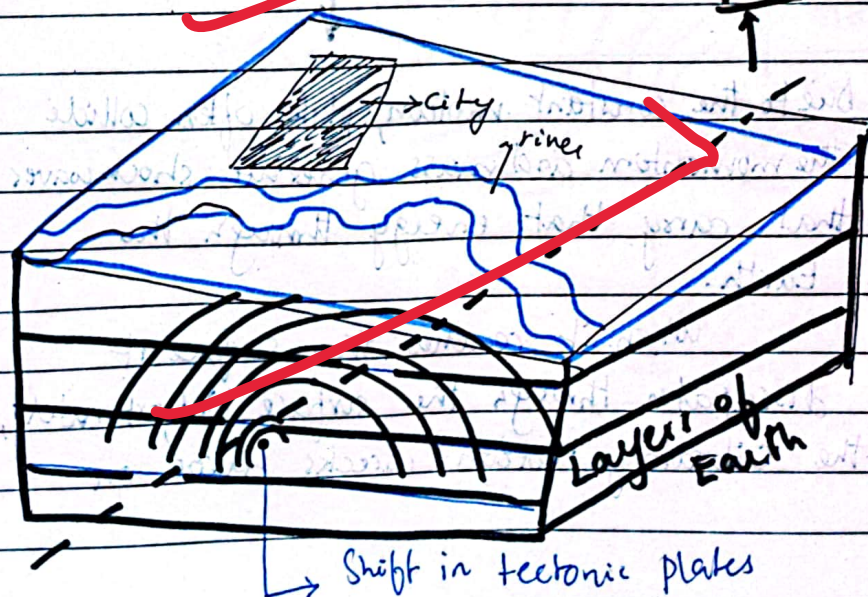 City
river
Layers of
Earth
Shift in tectonic plates